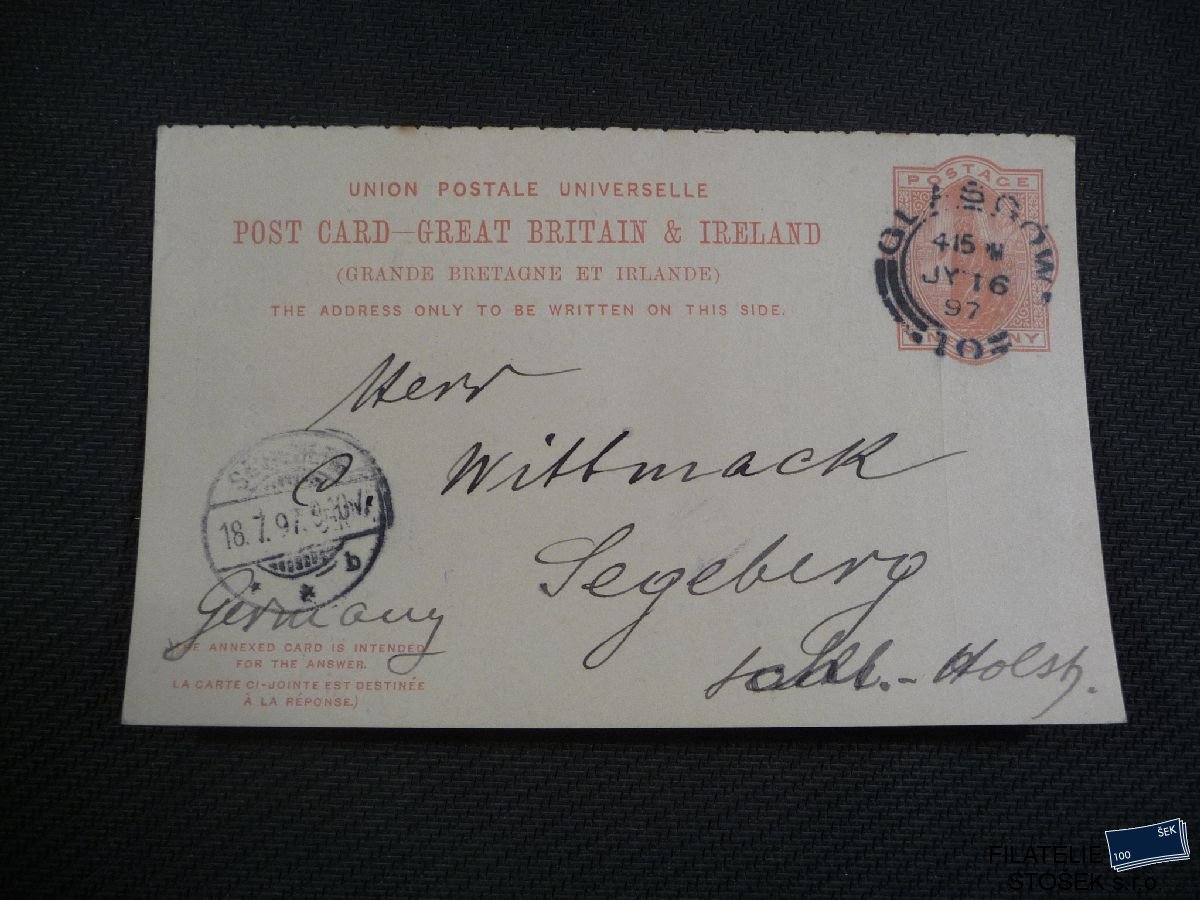 UNION POSTALE UNIVERSELLE
POST CARD—GREAT BRITAIN & IRELAND
(GRANDE BRETAGNE ET IRLANDE)
THE ADDRESS ONLY TO BE WRITTEN ON THIS SIDE.
POSTAGE
GLASGOW.
4 15 PM
JY 16
97
Herr
Wittmack
Segeberg
Schl.-Holst.
Germany
18.7.97.
b
THE ANNEXED CARD IS INTENDED
FOR THE ANSWER.
LA CARTE CI-JOINTE EST DESTINÉE
À LA RÉPONSE.)
100 ŠEK
FILATELIE
STOŠEK s.r.o.